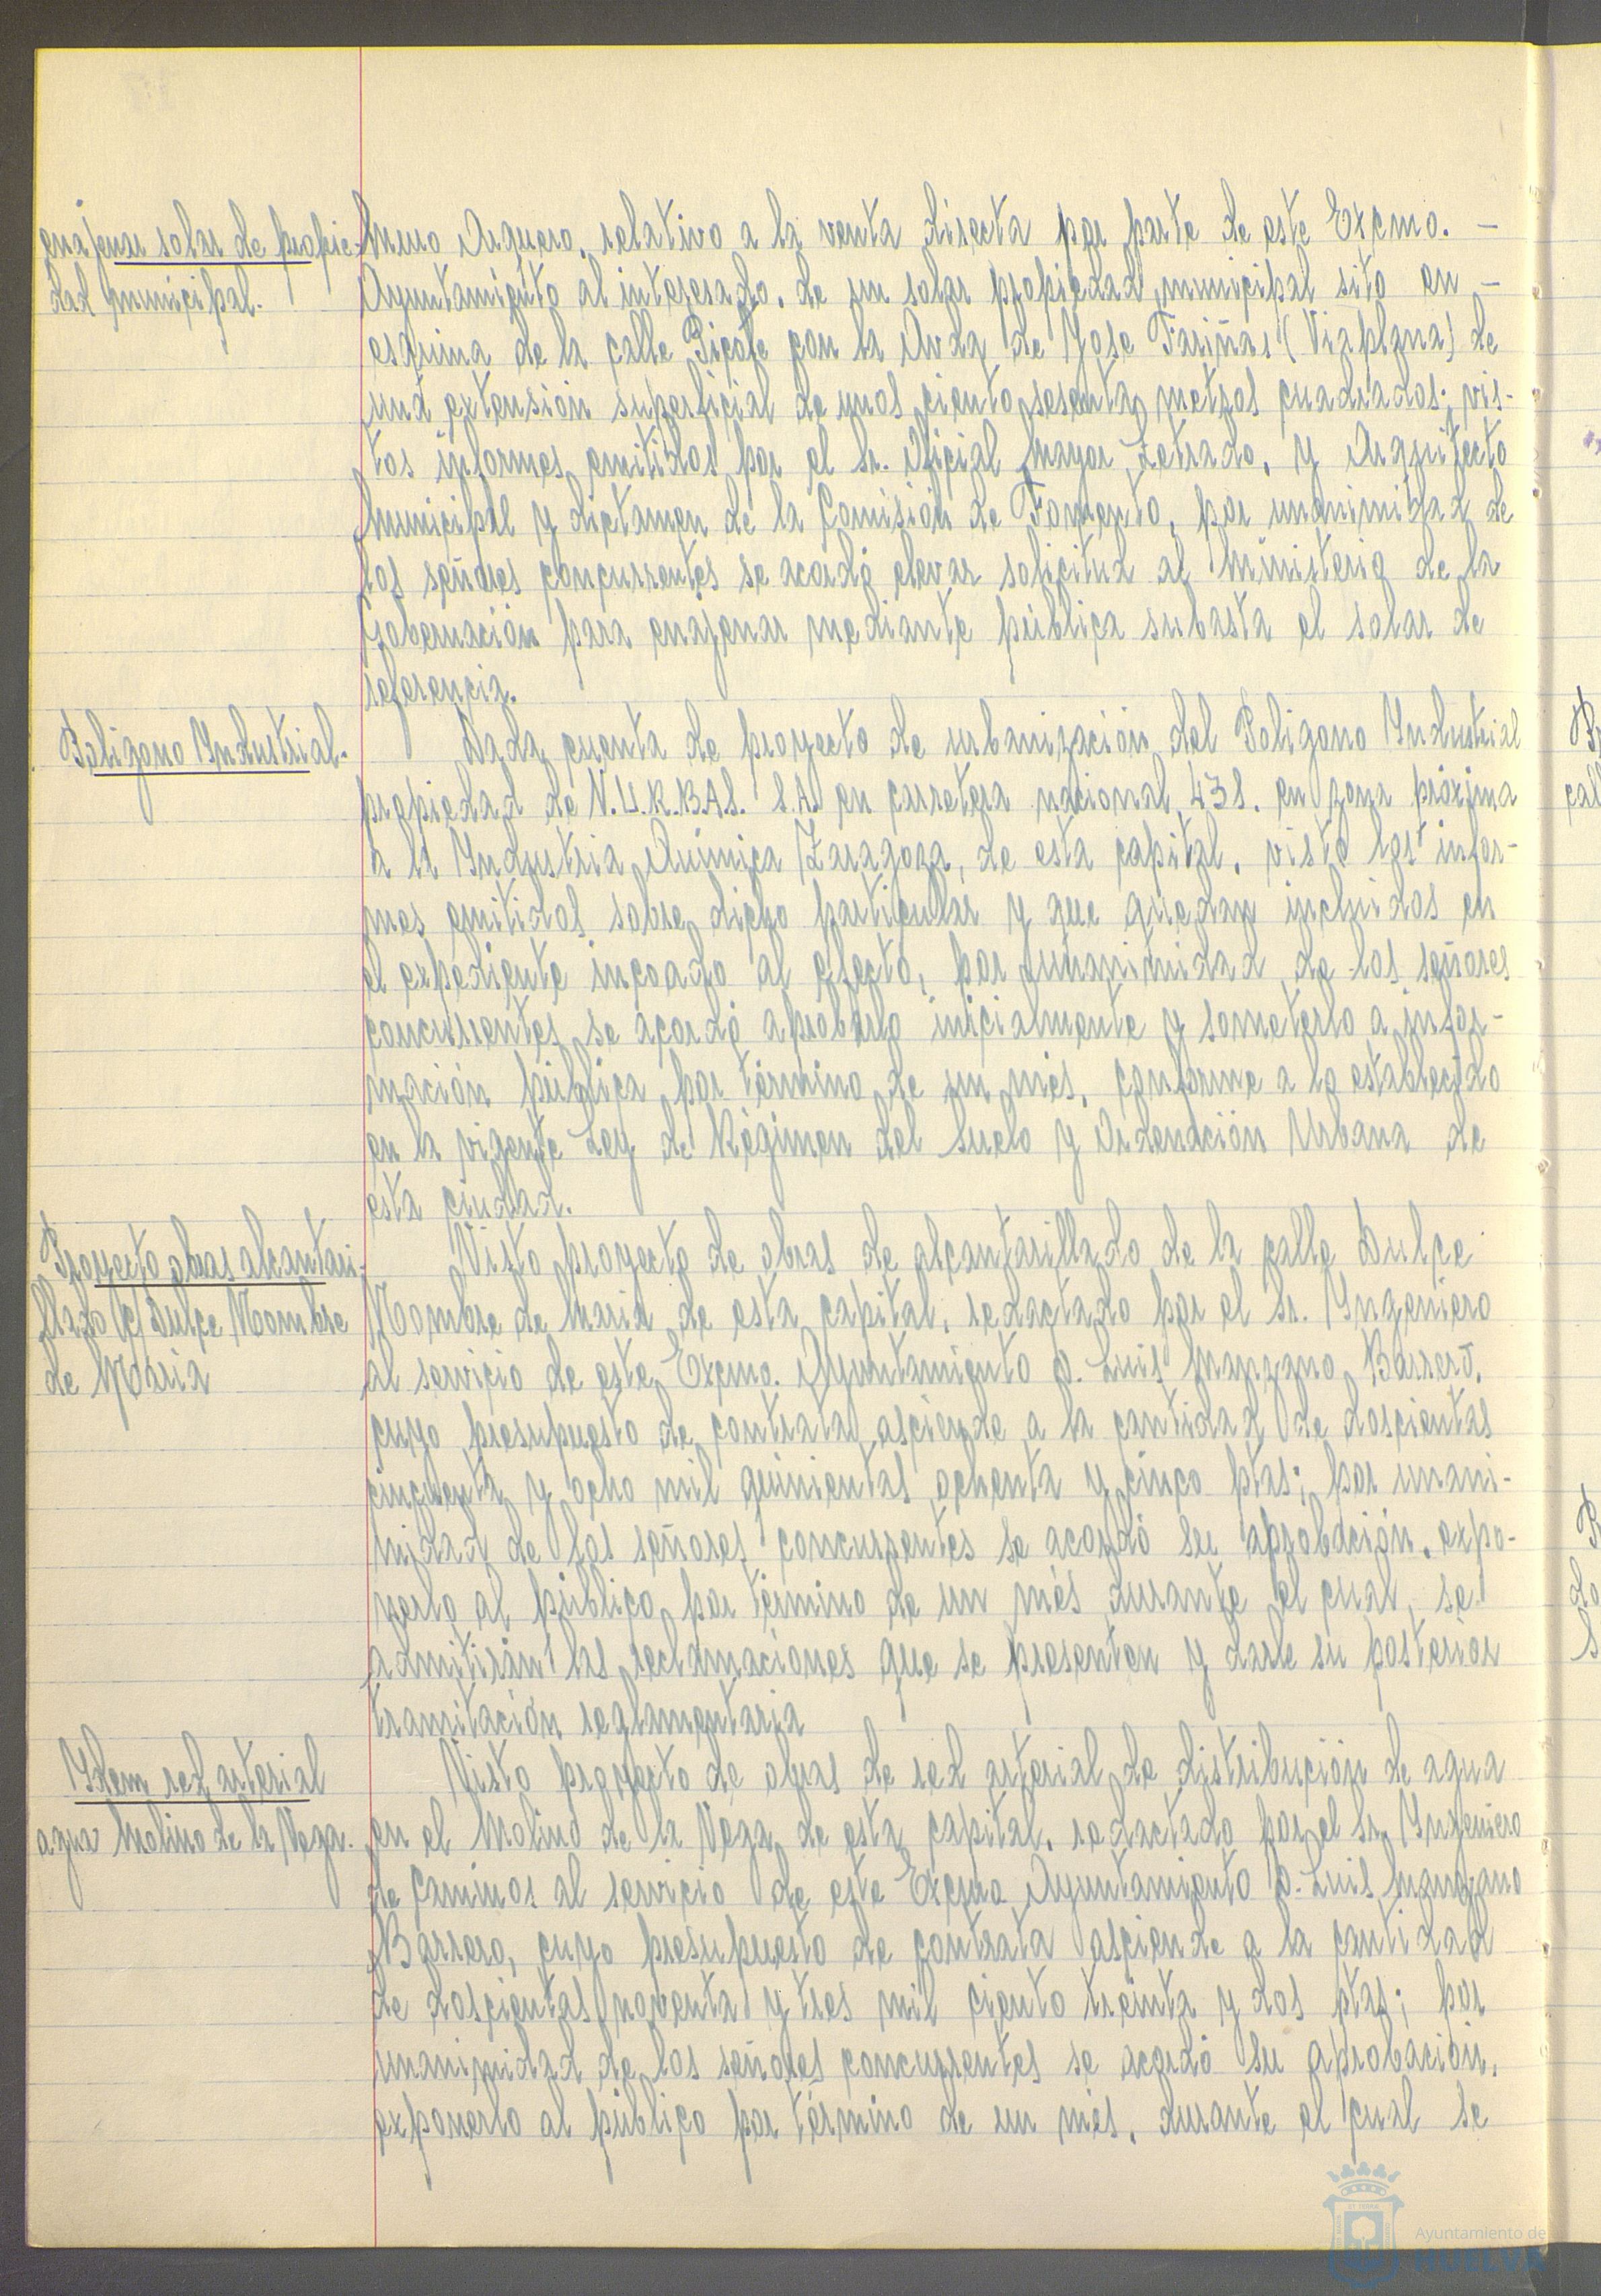 enajenar solar de propie-
dad municipal.
Muro Arquero, relativo a la venta directa por parte de este Excmo. -
Ayuntamiento al interesado, de un solar propiedad municipal sito en -
esquina de la calle con la Avda de Jose Fariñas (Viaplana) de
una extensión superficial de unos ciento sesenta metros cuadrados; vis-
tos informes emitidos por el Sr. Oficial Mayor Letrado, y Arquitecto
Municipal y dictamen de la Comisión de Fomento, por unanimidad de
los señores concurrentes se acordó elevar solicitud al Ministerio de la
Gobernación para enajenar mediante pública subasta el solar de
referencia.
Poligono Industrial.
Dada cuenta de proyecto de urbanización del Poligono Industrial
propiedad de S.A. en carretera nacional 431. en zona próxima
a la Industria Química Zaragoza, de esta capital, visto los infor-
mes emitidos sobre dicho particular y que quedan incluidos en
el expediente incoado al efecto, por unanimidad de los señores
concurrentes se acordó aprobarlo inicialmente y someterlo a infor-
mación pública por término de un més, conforme a lo establecido
en la vigente Ley de Régimen del Suelo y Ordenación Urbana de
esta ciudad.
Proyecto obras alcantari-
llado c/ Dulce Nombre
de Maria
Visto proyecto de obras de alcantarillado de la calle Dulce
Nombre de Maria de esta capital, redactado por el Sr. Ingeniero
al servicio de este Excmo. Ayuntamiento D. Luis Manzano Barrero,
cuyo presupuesto de contrata asciende a la cantidad de doscientas
cincuenta y ocho mil quinientas ochenta y cinco ptas; por unani-
midad de los señores concurrentes se acordó su aprobación, expo-
nerlo al público por término de un més durante el cual, se
admitirán las reclamaciones que se presenten y darle su posterior
tramitación reglamentaria
Idem red arterial
agua Molino de la Vega.
Visto proyecto de obras de red arterial de distribución de agua
en el Molino de la Vega de esta capital, redactado por el Sr. Ingeniero
de Caminos al servicio de este Excmo Ayuntamiento D. Luis Manzano
Barrero, cuyo presupuesto de contrata asciende a la cantidad
de doscientas noventa y tres mil ciento treinta y dos ptas; por
unanimidad de los señores concurrentes se acordó su aprobación,
exponerlo al público por término de un més, durante el cual se
Ayuntamiento de
HUELVA